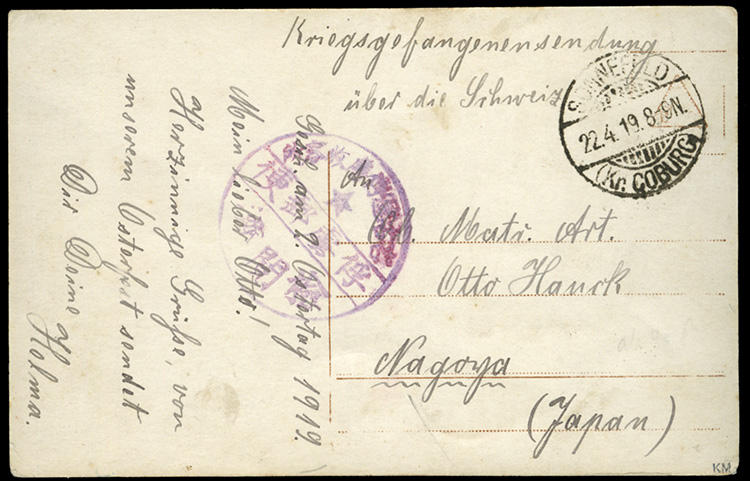 Kriegsgefangenensendung
über die Schweiz
SONNEFELD
22.4.19.8-9N.
(Kr. COBURG)
An
Matr. Art.
Otto Hanck
Nagoya
(Japan)
Geschr. am 2. Ostertag 1919.
Mein lieber Otto!
Herzinnige Grüße, von
unserem Osterfest sendet
Dir Deine
Helma.
俘虜郵便
檢閱濟
KM